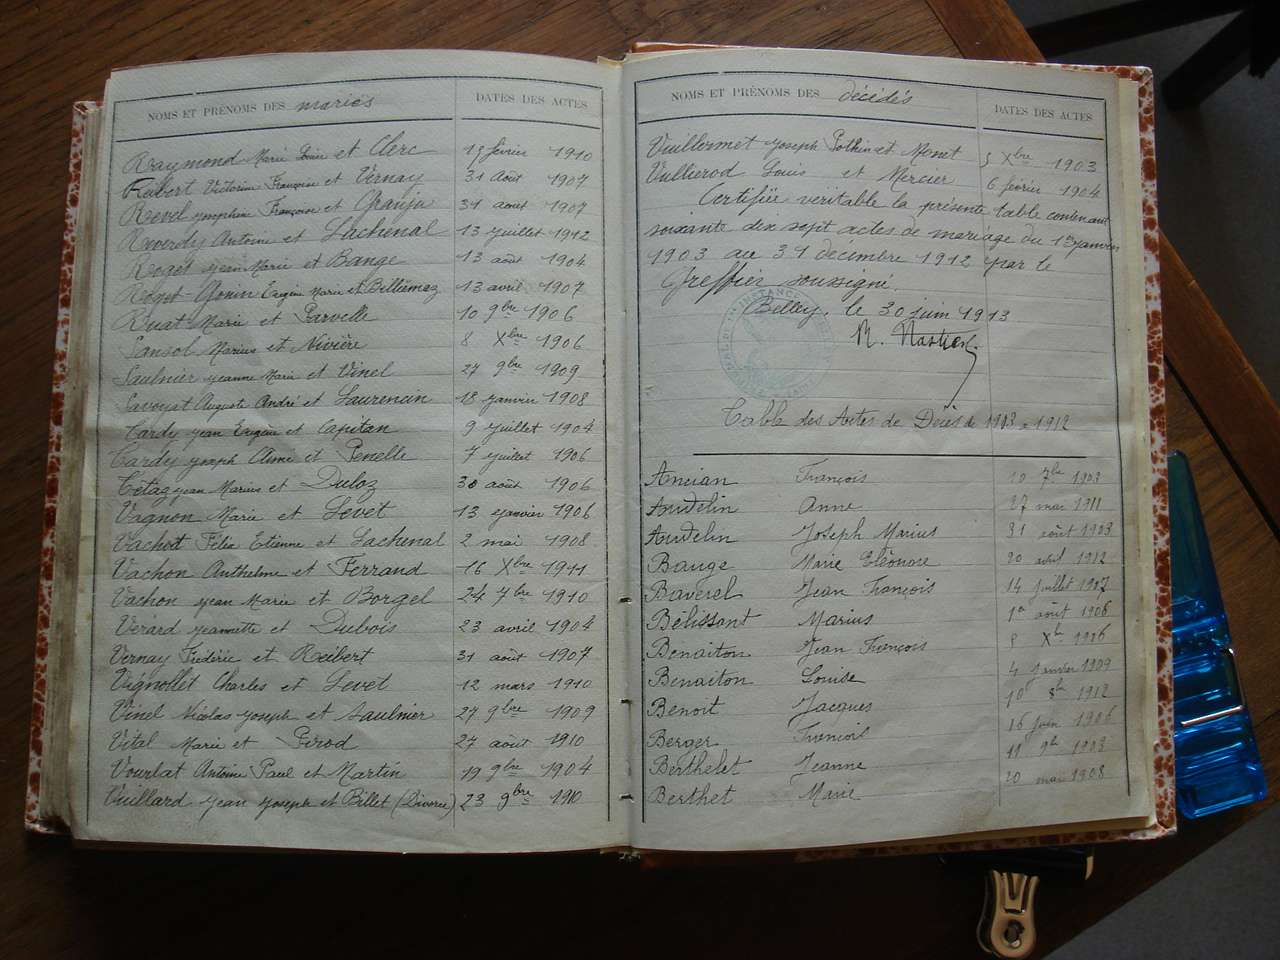 NOMS ET PRÉNOMS DES mariés DATES DES ACTES
Raymond Marie et Clerc 15 février 1910
Rubert Victorine Françoise et Vernay 31 Août 1907
Revel Josephine Françoise et Granju 31 août 1907
Reverdy Antoine et Lachenal 13 juillet 1912
Roget Jean Marie et Bange 13 août 1904
Eugène Marie et Billiemaz 13 avril 1907
Ruat Marie et Parvelle 10 9bre 1906
Sansol Marius et Nivière 8 Xbre 1906
Saulnier Jeanne Marie et Vinel 27 9bre 1909
Savoyat Auguste André et Laurencin 18 janvier 1908
Tardy Jean Eugène et Capitan 9 juillet 1904
Tardy Joseph Aimé et Penelle 7 juillet 1906
Tétaz Jean Marius et Duloz 30 août 1906
Vagnon Marie et Levet 13 janvier 1906
Vachod Félix Etienne et Lachenal 2 mai 1908
Vachon Anthelme et Ferrand 16 Xbre 1911
Vachon Jean Marie et Borgel 24 7bre 1910
Verard Jeannette et Dubois 23 avril 1904
Vernay Frédéric et Reibert 31 août 1907
Vignollet Charles et Levet 12 mars 1910
Vinel Nicolas Joseph et Saulnier 27 9bre 1909
Vital Marie et Girod 27 août 1910
Vourlat Antoine Paul et Martin 19 9bre 1904
Vuillard Jean Joseph et Billet (Divorce) 23 9bre 1910
NOMS ET PRÉNOMS DES décédés DATES DES ACTES
Vuillermet Joseph Pothin et Monet 5 Xbre 1903
Vullierod Louis et Mercier 6 février 1904
Certifiée véritable la présente table contenant
soixante dix sept actes de mariage du 1er janvier
1903 au 31 décembre 1912 par le
Greffier soussigné.
Belley, le 30 juin 1913
Table des Actes de Décès de 1903 à 1912
Ancian François 10 7bre 1903
Audelin Anne 27 mai 1911
Audelin Joseph Marius 31 août 1903
Bange Marie Eléonore 20 avril 1912
Baverel Jean François 14 Juillet 1907
Bélissant Marius 1er août 1906
Benaiton Jean François 8 Xbre 1906
Benaiton Louise 4 Janvier 1909
Benoit Jacques 10 8bre 1912
Berger François 16 juin 1906
Berthelet Jeanne 11 9bre 1903
Berthet Marie 20 mai 1908